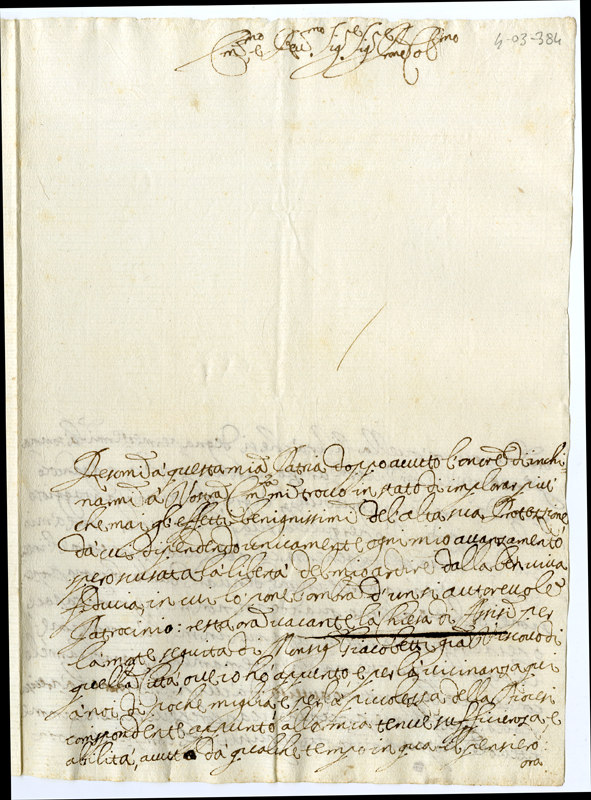 Em.mo e Rev.mo Sig.re Sig.re Prone Col.mo
4-03-384
Resomi à questa mia Patria doppo avuto l'onore d'inchi-
narmi à Vostra Em.za mi trovo in stato d'implorar più
che mai gl'effetti benignissimi del'alta sua Protezione
da cui dipendendo unicamente ogni mio avanzamento
spero scusata la libertà del mio ardire dalla ben viva
fiducia, in cui si pone l'ombra d'un sì autorevole
Patrocinio: resta ora vacante la Chiesa di per
la morte seguita di Monsig.r Giacobetti già Vescovo di
quella Città, ove io hò appunto e per la vicinanza qui
à noi di poche miglia, e per la picciolezza della Diocesi
corrispondente appunto alla mia tenue sufficienza e
abilità, avuto da qualche tempo in qua il pensiero:
ora